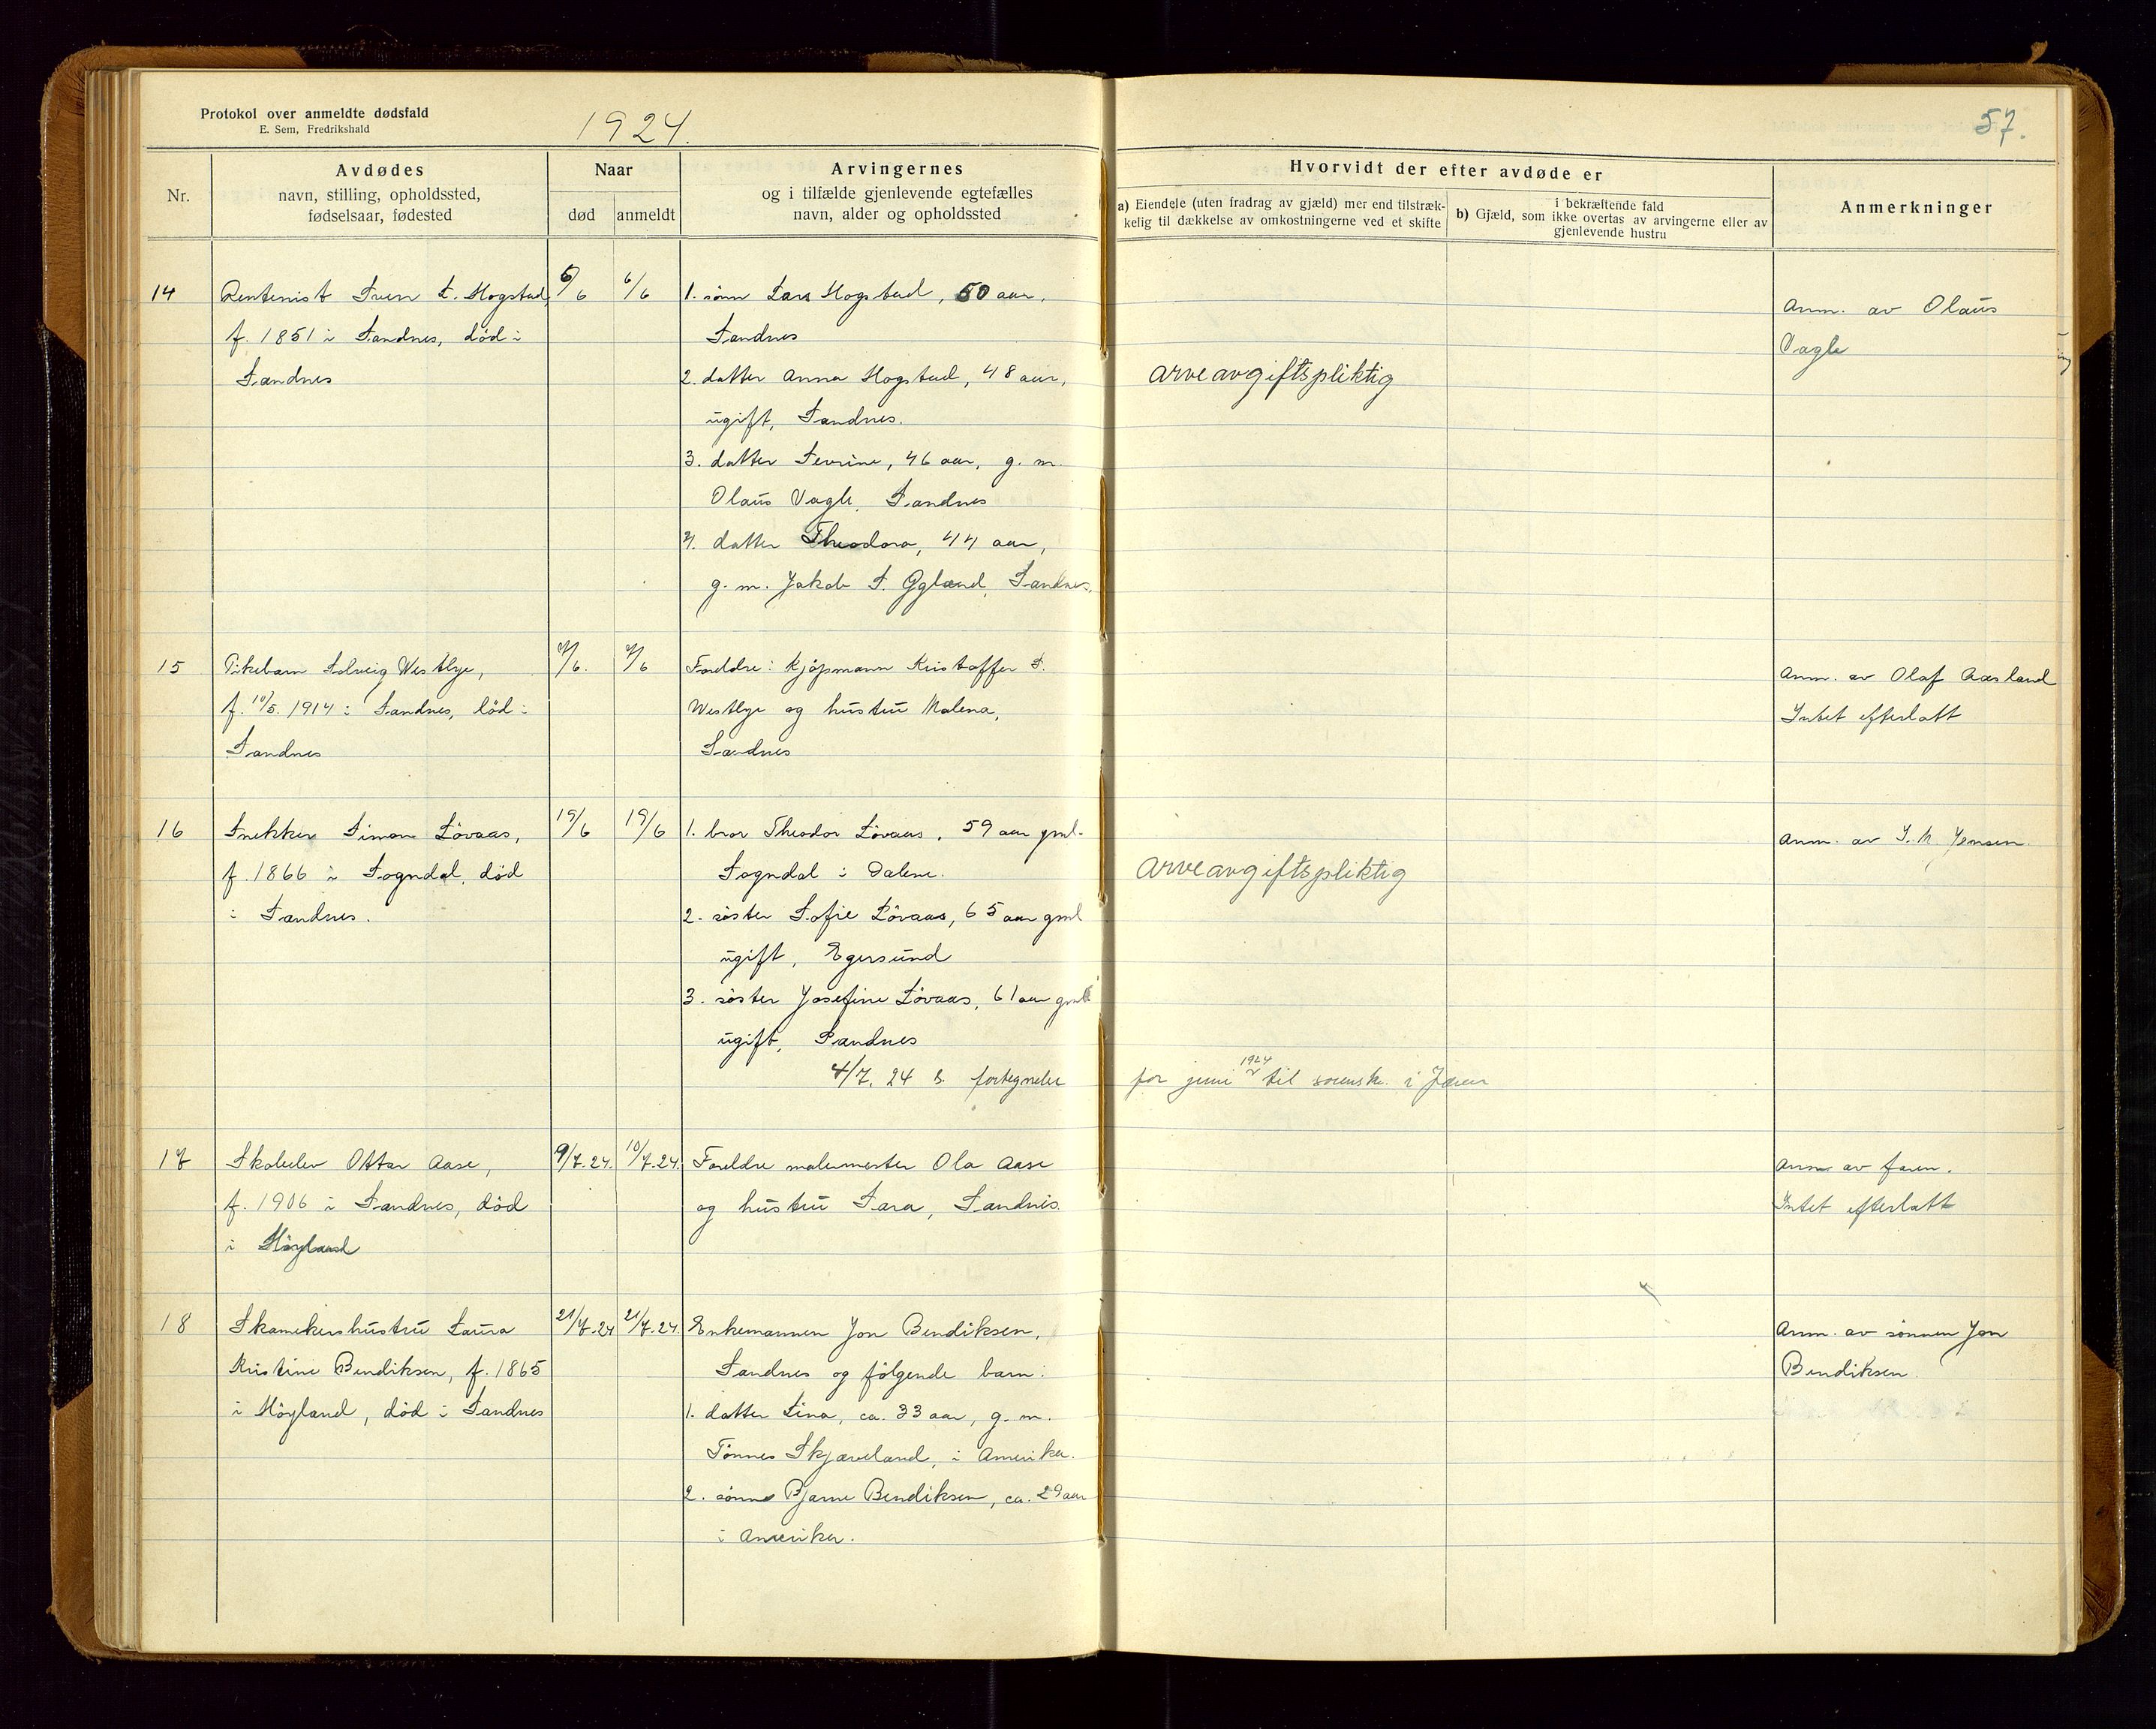 Protokol over anmeldte dødsfald
E. Sem, Fredrikshald
1924.
57.
Nr.
Avdødes
navn, stilling, opholdssted,
fødselsaar, fødested
Naar
død
anmeldt
Arvingernes
og i tilfælde gjenlevende egtefælles
navn, alder og opholdssted
Hvorvidt der efter avdøde er
a) Eiendele (uten fradrag av gjæld) mer end tilstræk-
kelig til dækkelse av omkostningerne ved et skifte
i bekræftende fald
b) Gjæld, som ikke overtas av arvingerne eller av
gjenlevende hustru
Anmerkninger
14
Rentenist Sven L. Hogstad,
f. 1851 i Sandnes, død i
Sandnes
5/6
6/6
1. sønn Lars Hogstad, 50 aar,
Sandnes
2. datter Anna Hogstad, 48 aar,
ugift, Sandnes.
3. datter Sevrine, 46 aar, g. m.
Olaus Vagle, Sandnes
4. datter Theodora, 44 aar,
g. m. Jakob S. Ggland, Sandnes.
arveavgiftspliktig
Anm. av Olaus
Vagle
15
Pikebarn Solveig Westlye,
f. 10/5. 1914 i Sandnes, død i
Sandnes
7/6.
7/6
Foreldre: Kjøpmann Kristoffer S.
Westlye og hustru Malena,
Sandnes
Anm. av Olaf Aasland
Intet efterlatt
16
Snekker Simon Løvaas,
f. 1866 i Sogndal, død
i Sandnes.
19/6
19/6
1. bror Theodor Løvaas, 59 aar gml.
Sogndal i Dalene.
2. søster Sofie Løvaas, 65 aar gml
ugift, Egersund
3. søster Josefine Løvaas, 61 aar gml
ugift, Sandnes
4/7. 24 s. fortegnelse
for juni 1924 til sorensk. i Jæren
arveavgiftspliktig
Anm. av I. M. Jensen.
17
Skoleelev Ottar Aase,
f. 1906 i Sandnes, død
i Høyland
9/7.24.
10/7.24.
Foreldre malermester Ola Aase
og hustru Sara, Sandnes.
Anm av faren.
Intet efterlatt
18
Skomakershustru Laura
Kristine Bendiksen, f. 1865
i Høyland, død i Sandnes
21/7.24
21/7.24.
Enkemannen Jon Bendiksen,
Sandnes og følgende barn:
1. datter Lina, ca. 33 aar, g. m.
Tønnes Skjæveland, i Amerika.
2. sønn Bjarne Bendiksen, ca. 29 aar
i Amerika.
Anm. av sønnen Jon
Bendiksen.